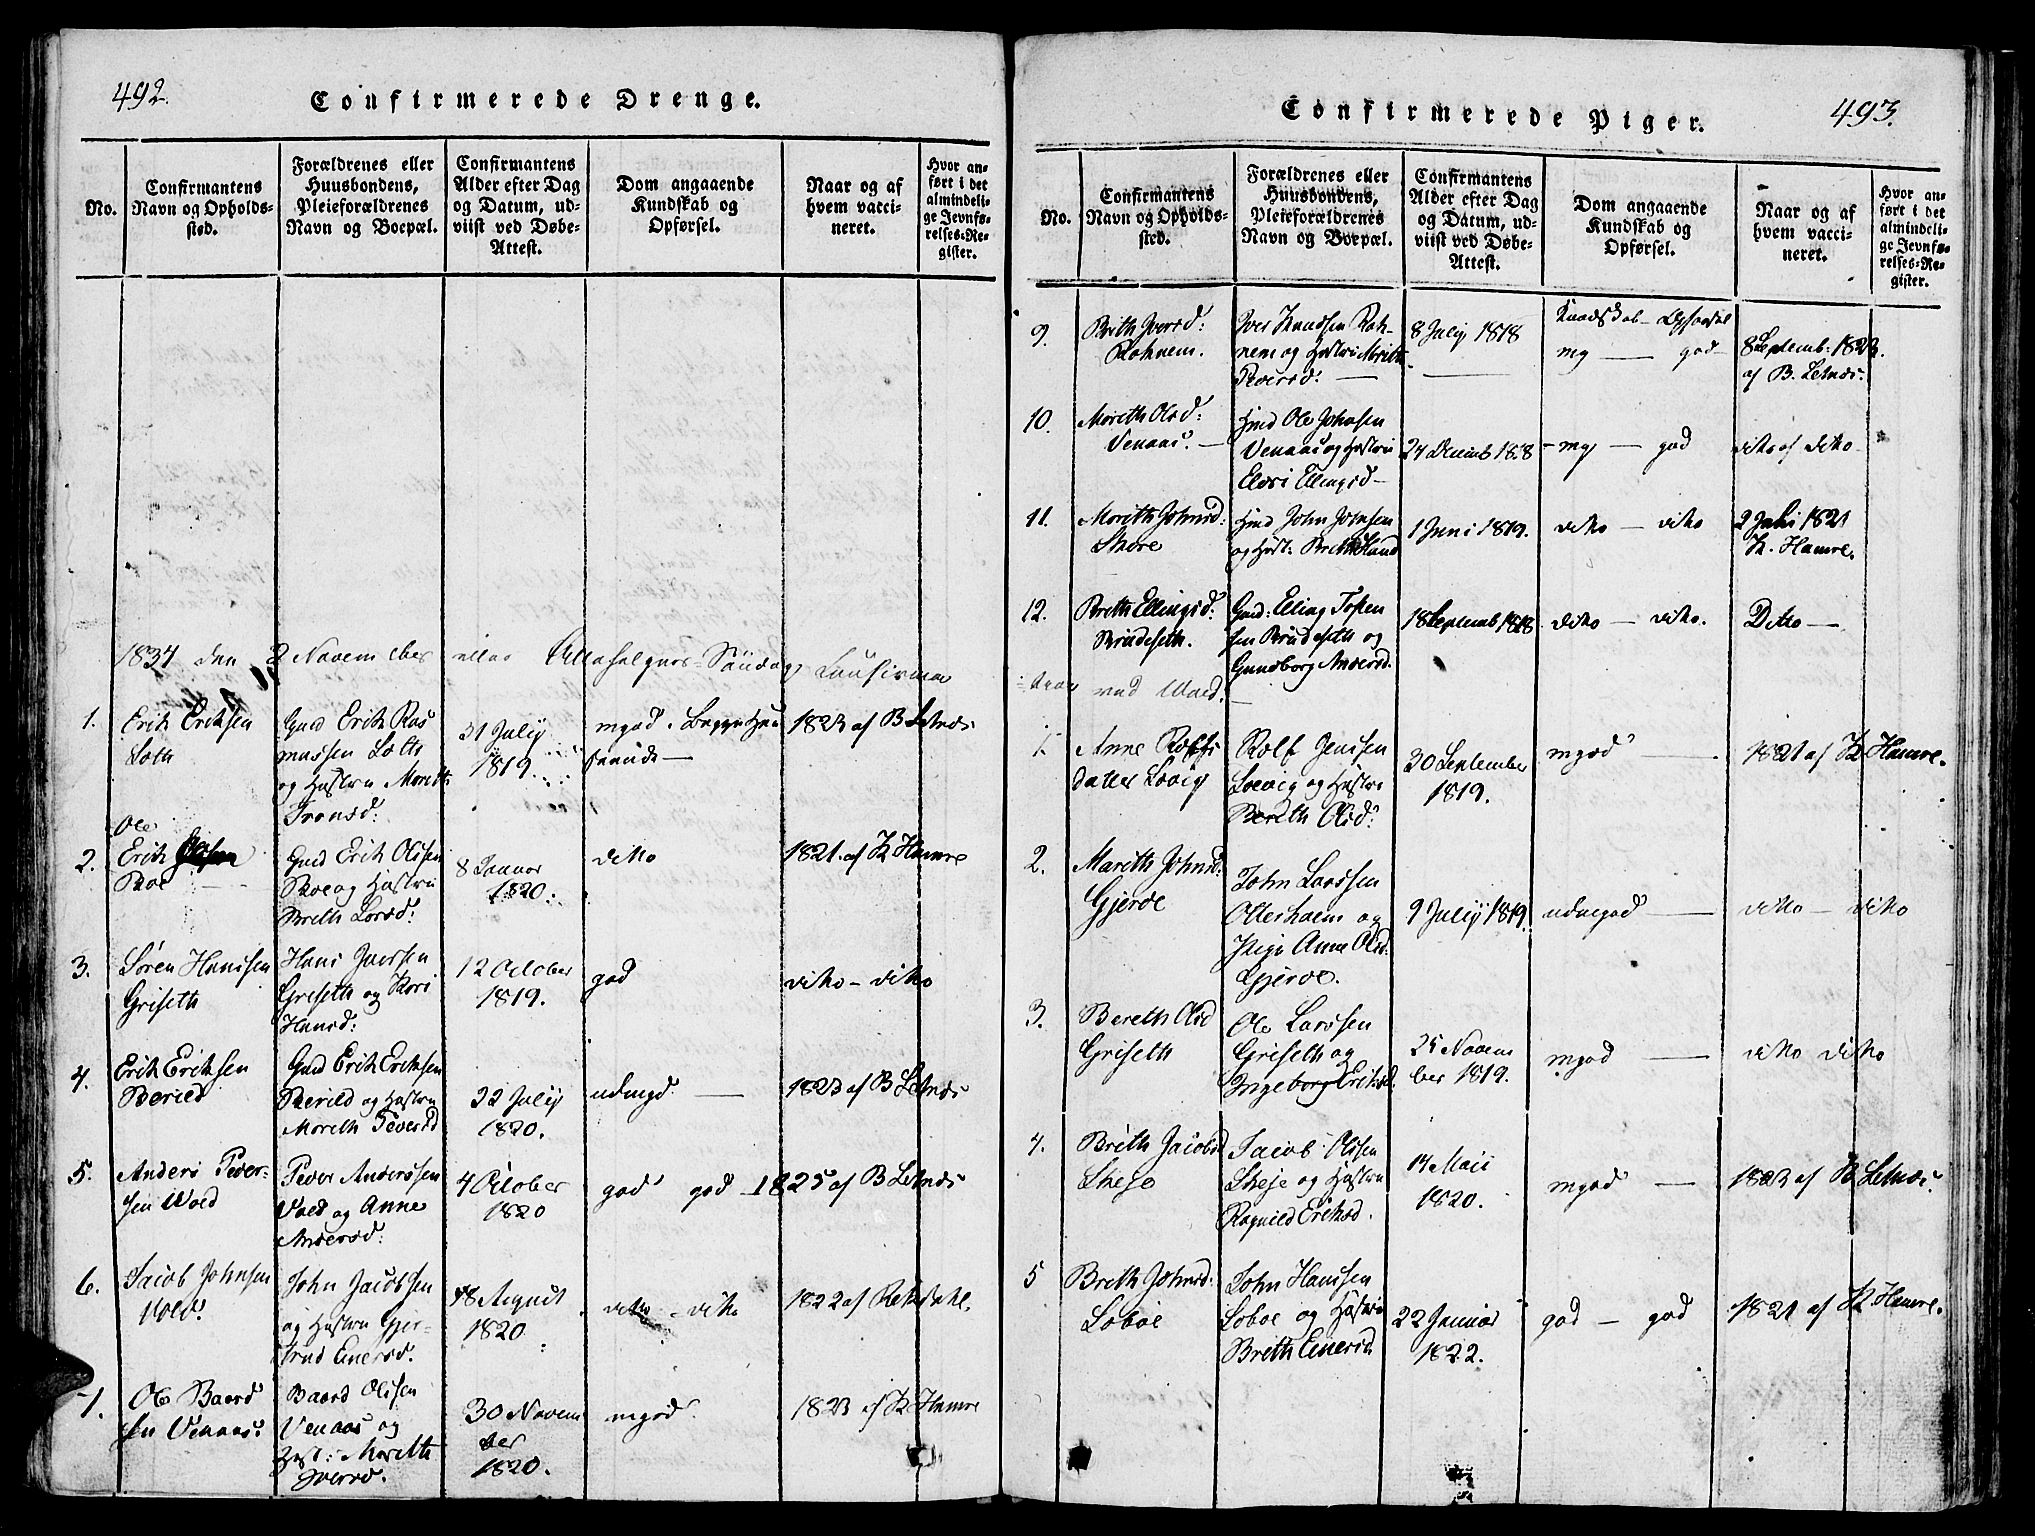 492.
Confirmerede Drenge.
No.
Confirmantens
Navn og Opholds-
sted.
Forældrenes eller
Huusbondens,
Pleieforældrenes
Navn og Boepæl.
Confirmantens
Alder efter Dag
og Datum, ud-
viist ved Døbe-
Attest.
Dom angaaende
Kundskab og
Opførsel.
Naar og af
hvem vacci-
neret.
Hvor an-
ført i det
almindeli-
ge Jevnfø-
relses-Re-
gister.
1834 den 2 November eller Allehelgens Søndag Confirma
1.
Erik Eriksen
Loth
Gmd Erik Ras
mussen Loth
og Hustru Mareth
Tronsd:
31 July
1819.
mgod.
1823 af B Letnes
2.
Ole
Erik
Roe
Gmd Erik Olsen
Roe og Hustru
Breth Larsd:
8 Januar
1820.
dito
1821. af K Hamre
3.
Søren Hansen
Griseth
Hans Iversen
Griseth og Kari
Hansd:
12 October
1819.
god
dito - dito
4.
Erik Eriksen
Berild
Gmd Erik Eriksen
Berild og Hustru
Mareth Pedersd
22 July
1820.
udmgd.
1823 af B Letnes
5.
Anders Peder-
sen Wold
Peder Andersen
Vold og Anne
Andersd:
4 October
1820
god god
1825 af B Letnes
6.
Jacob Johnsen
Vold.
John Jacobsen
og Hustru Gjer-
trud Einersd.
18 August
1820
dito - dito
1822 af Rekdahl.
7.
Ole Baard
sen Venaas:
Baard Olsen
Venaas og
Hust: Mareth
Iversd.
30 Novem
ber
1820.
mgod.
1823 af K Hamre
493.
Confirmerede Piger.
No.
Confirmantens
Navn og Opholds-
sted.
Forældrenes eller
Huusbondens,
Pleieforældrenes
Navn og Boepæl.
Confirmantens
Alder efter Dag
og Datum, ud-
viist ved Døbe-
Attest.
Dom angaaende
Kundskab og
Opførsel.
Naar og af
hvem vacci-
neret.
Hvor an-
ført i det
almindeli-
ge Jevnfø-
relses-Re-
gister.
9.
Brith Iversd:
Kohnem.
Iver Knudsen Koh-
nem og Hustru Mrith
Pedersd.
8 July 1818
Kundskab - Opførsel
mg - god
8 Septemb: 1823.
af B. Letnes.
10.
Mareth Olsd:
Venaas.
Hmd Ole Johnsen
Venaas og Hustru
Elingsd
24 Decemb 1818
mg - god
dito af dito
11.
Mareth Johnsd:
Skore
Hmd John Johnsen
og Hust: Breth
1 Juni 1819.
dito - dito
2 Juli 1821
K. Hamre.
12.
Breth Ellingsd:
Brudeseth.
Gmd: Elling
sen Brudeseth og
Gundborg Andersd.
18 Septemb 1818
dito - dito.
Dito
ved Wold.
1.
Anne Rolfs
datter Lovig
Rolf Jensen
Lovig og Hustru
Bereth Olsd:
30 September
1819.
mgod
1821 af K Hamre.
2.
Mareth Johnsd:
Gjerde
John Larssen
Otterholm og
Pige Anne Olsd
Gjerde.
9 July 1819.
udmgod
dito - dito
3.
Bereth Olsd
Griseth
Ole Larssen
Griseth og
Ingeborg Eriksd.
25 Novem
ber 1819.
mgod
dito dito
4.
Brith Jacobsd
Skeje
Jacob Olsen
Skeje og Hustru
Ragnild Eriksd.
14 Maii
1820.
mgod
1823 af B Letnes.
5
Breth Johnsd:
Loboe
John Hansen
Loboe og Hustru
Breth Einersd
22 Januar
1822.
god - god
1821 af K Hamre.